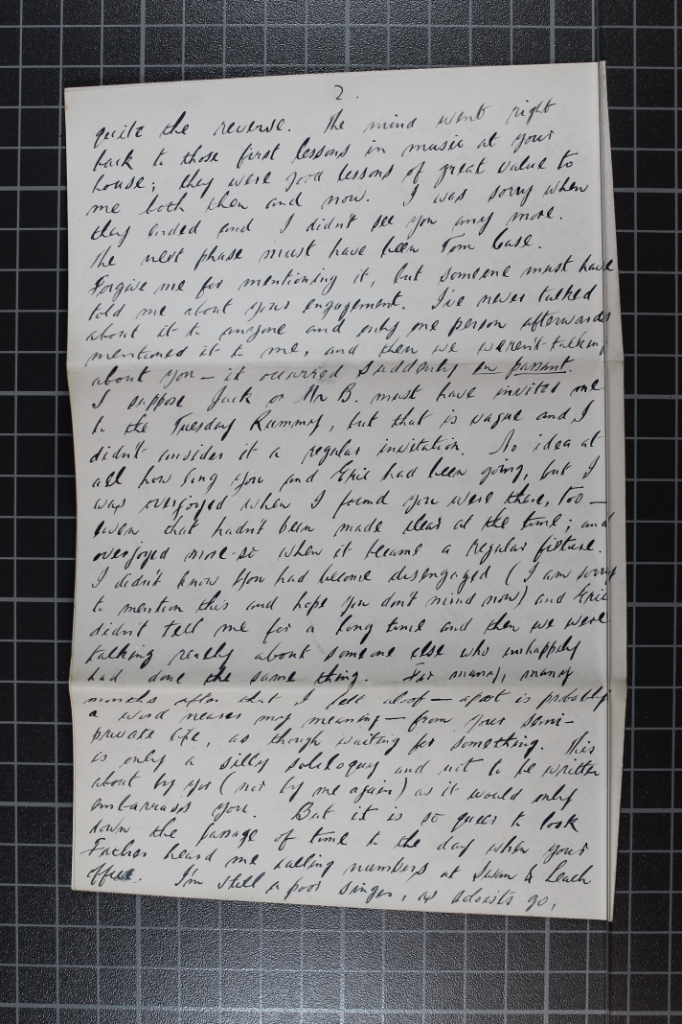 2.
quite the reverse. The mind went right
back to those first lessons in music at your
house; they were good lessons of great value to
me both then and now. I was sorry when
they ended and I didn't see you any more.
The next phase must have been Tom Case.
Forgive me for mentioning it, but someone must have
told me about your engagement. I've never talked
about it to anyone and only one person afterwards
mentioned it to me, and then we weren't talking
about you — it occurred suddenly en passant.
I suppose Jack or Mr B. must have invited me
to the Tuesday Rummy, but that is vague and I
didn't consider it a regular invitation. No idea at
all how long you and Eric had been going, but I
was overjoyed when I found you were there, too —
even that hadn't been made clear at the time; and
overjoyed more-so when it became a regular fixture.
I didn't know you had become disengaged (I am sorry
to mention this and hope you don't mind now) and Eric
didn't tell me for a long time and then we were
talking really about someone else who unhappily
had done the same thing. For many, many
months after that I felt aloof — apart is probably
a word nearer my meaning — from your semi-
private life, as though waiting for something. This
is only a silly soliloquy and not to be written
about by you (nor by me again) as it would only
embarrass you. But it is so queer to look
down the passage of time to the day when your
Father heard me calling numbers at Swan & Leach
office. I'm still a poor singer, as soloists go,